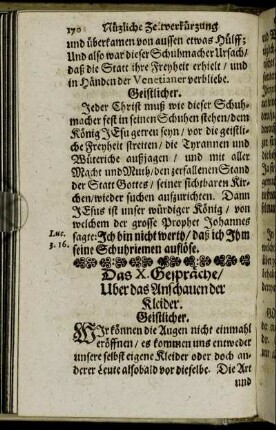 170 Nützliche Zeitverkürzung
und überkamen von aussen etwas Hülff;
Und also war dieser Schuhmacher Ursach/
daß die Statt ihre Freyheit erhielt / und
in Händen der Venetianer verbliebe.
Geistlicher.
Jeder Christ muß wie dieser Schuh-
macher fest in seinen Schuhen stehen/dem
König JEsu getreu seyn/ vor die geistli-
che Freyheit streiten/ die Tyrannen und
Wüteriche außjagen/ und mit aller
Macht und Muth/den zerfallenen Stand
der Statt Gottes/ seiner sichtbaren Kir-
chen/wieder suchen aufzurichten. Dann
JEsus ist unser würdiger König/ von
welchem der grosse Prophet Johannes
Luc. 3. 16.
sagte: Ich bin nicht werth/ daß ich Ihm
seine Schuhriemen auflöse.
Das X. Gespräche/
Uber das Anschauen der
Kleider.
Geistlicher.
WIr können die Augen nicht einmahl
eröffnen/ es kommen uns entweder
unsere selbst eigene Kleider oder doch an-
derer Leute alsobald vor dieselbe. Die Art
und